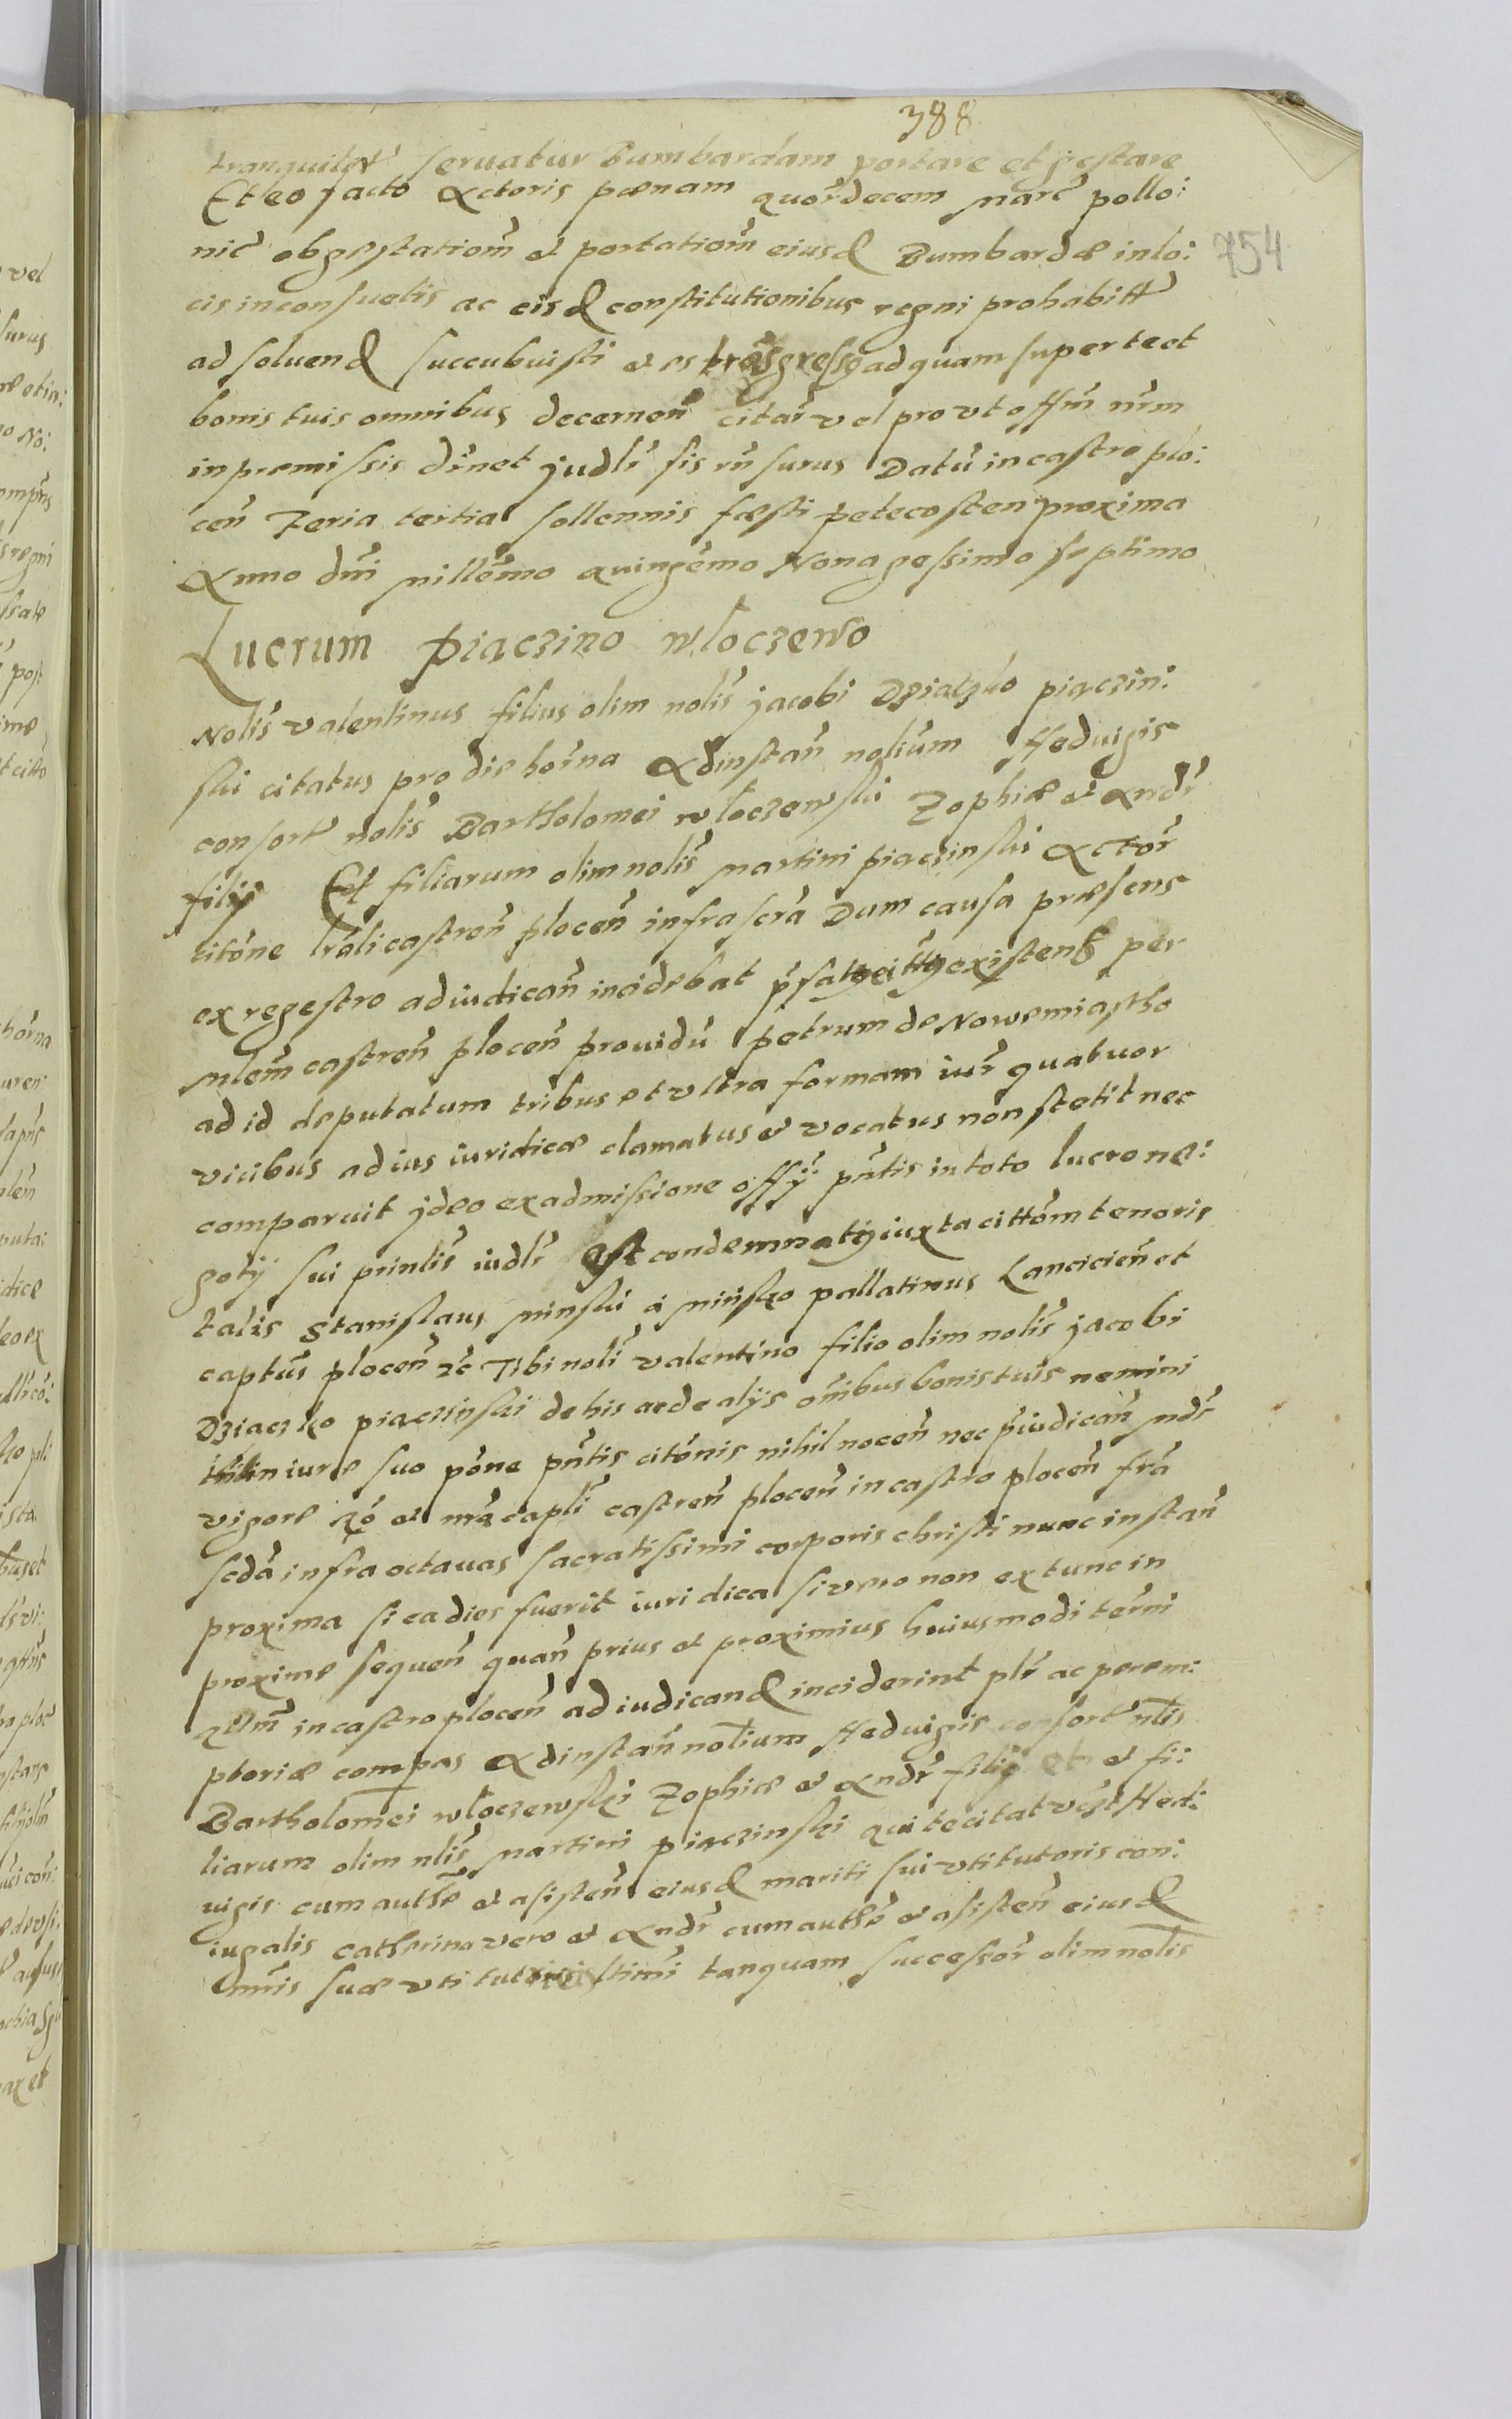 388
tranquiliter seruatur Bumbardam portare et gestare
Et eo facto Actoris pœnam quordecem Marc pollo:
nic obgestationm et portationm eiusd Bumbardæ in lo:
754
cis inconsuetis ac eisd constitutionibus regni prohabitt
ad soluend succubuisti et es transgressus ad quam super te et
bonis tuis omnibus decernen citar vel prout offm nrm
in premissis drnet judlr sis rnsurus Datu in castro plo:
cen Feria tertia sollennis fæsti petecosten proxima
Anno dni Millemo quingemo Nonagessimo septimo
Lucrum Piączino Włoczewo
Nolis Valentinus filius olim nolis Jacobi Dziatzko piączin:
ski citatus pro die horna Ad instan nolium Heduigis
consort nolis Bartholomei Włoczewski Zophiæ et Andr
filiȷ Et filiarum olim nolis Martini Piączinski Actor
citone lrali castren plocen infrascra Dum causa præsens
ex regestro ad iudican incidebat psatus existens per
Mlem castren plocen prouidu Petrum de Nowemiastho
ad id deputatum tribus et vltra formam iur quatuor
vicibus ad ius iuridicæ clamatus et vocatus non stetit nec
comparuit jdeo ex admissione offÿ pntis in toto lucro ne:
gotÿ sui prinlis iudlr est condemnatus iuxta cittom tenoris
talis Stanislaus Minski a Minsko pallatinus Lancicien et
captus plocen zc Tibi noli Valentino filio olim nolis Jacobi
Dziaczko piączinski de his ac de alÿs omibus bonis tuis nemini
in iure suo pone pntis citonis nihil nocen nec piudican Mdr
vigore Ro et nra capli castren plocen in castro plocen fra
scda infra octauas sacratissimi corporis christi nunc instan
proxima si ea dies fuerit iuridica si vero non extunc in
proxime sequen quan prius et proximius huiusmodi terni
Rlm in castro plocen ad iudicand inciderint plr ac perem:
ptoriæ compas Ad instan nolium Heduigis consort nlis
Bartholomei Włoczewski Zophiæ et Andr filiȷ et fi:
liarum olim nlis Martini piączinski qui te citat vest Hed:
uigis cum authe et asisten eiusd mariti sui vti tutoris con:
iugalis Catherina vero et Andr cum authe et asisten eiusd
mris suæ vti tutoris tanquam successor olim nolis